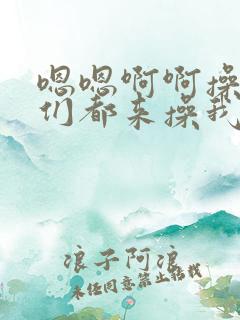 嗯嗯啊啊操
们都来操我
浪子阿浪
未经同意禁止转载